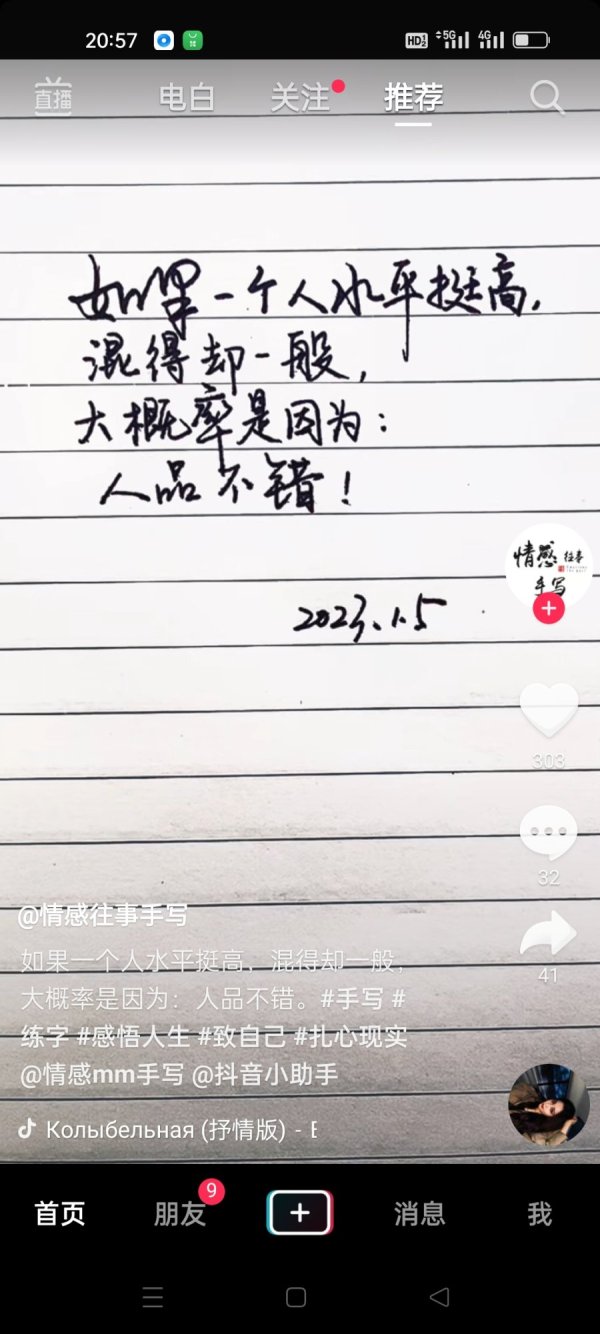 20:57
HD2 5G 4G
直播 电白 关注 推荐
如果一个人水平挺高,
混得却一般,
大概率是因为:
人品不错!
2023.1.5
情感往事
手写
303
32
41
@情感往事手写
如果一个人水平挺高,混得却一般,
大概率是因为:人品不错。#手写 #
练字 #感悟人生 #致自己 #扎心现实
@情感mm手写 @抖音小助手
Колыбельная (抒情版) -
首页 朋友 9 消息 我